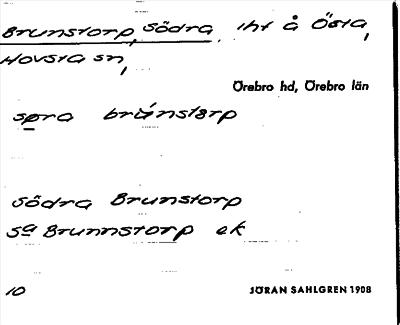 Brunstorp, Södra, iht å Östa,
Hovsta sn,
Örebro hd, Örebro län
søra brúnstørp
Södra Brunstorp
Sa Brunnstorp ek
10
JÖRAN SAHLGREN 1908